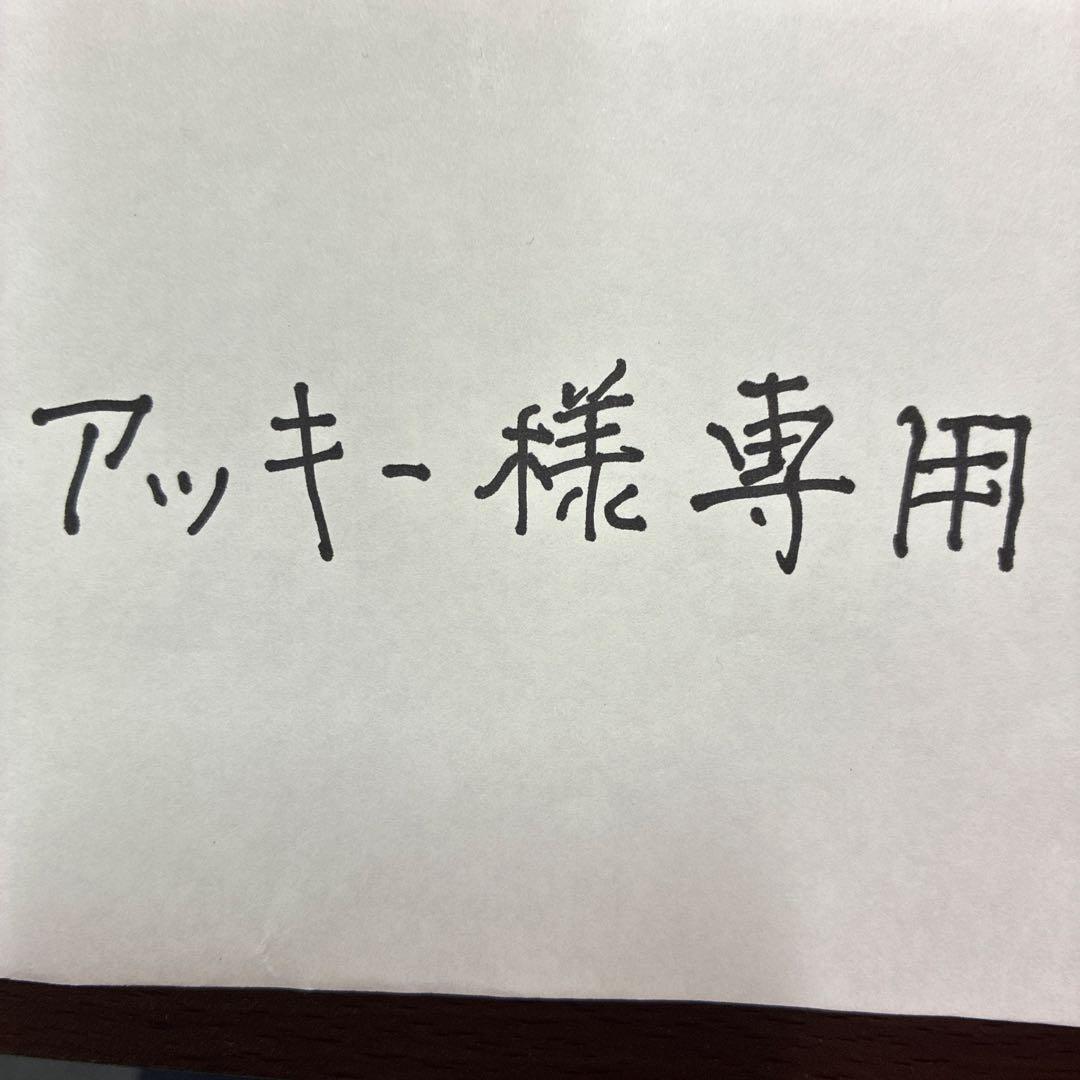 アッキー様専用